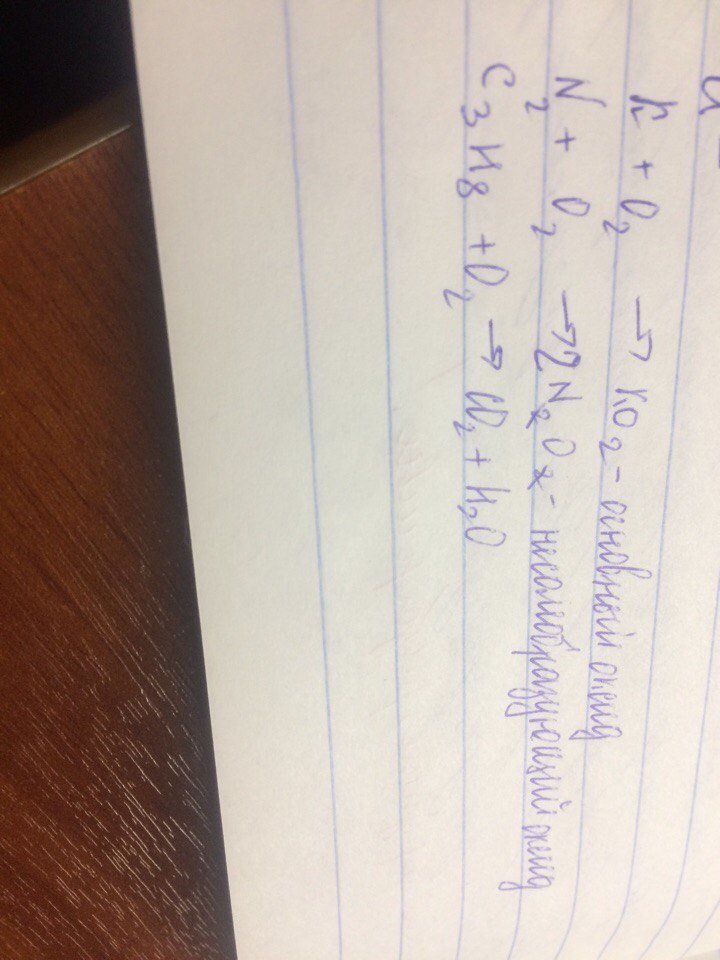 K + O₂ → KO₂ - основный оксид
N₂ + O₂ → 2N₂O₂ - несолеобразующий оксид
C₃H₈ + O₂ → CO₂ + H₂O